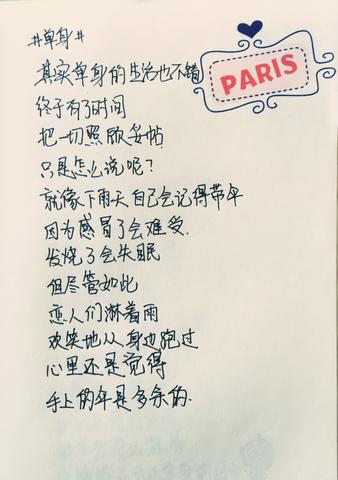 #单身#
PARIS
其实单身的生活也不错
终于有了时间
把一切照顾妥帖
只是怎么说呢？
就像下雨天自己会记得带伞
因为感冒了会难受.
发烧了会失眠
但尽管如此
恋人们淋着雨
欢笑地从身边跑过
心里还是觉得
手上的伞是多余的.